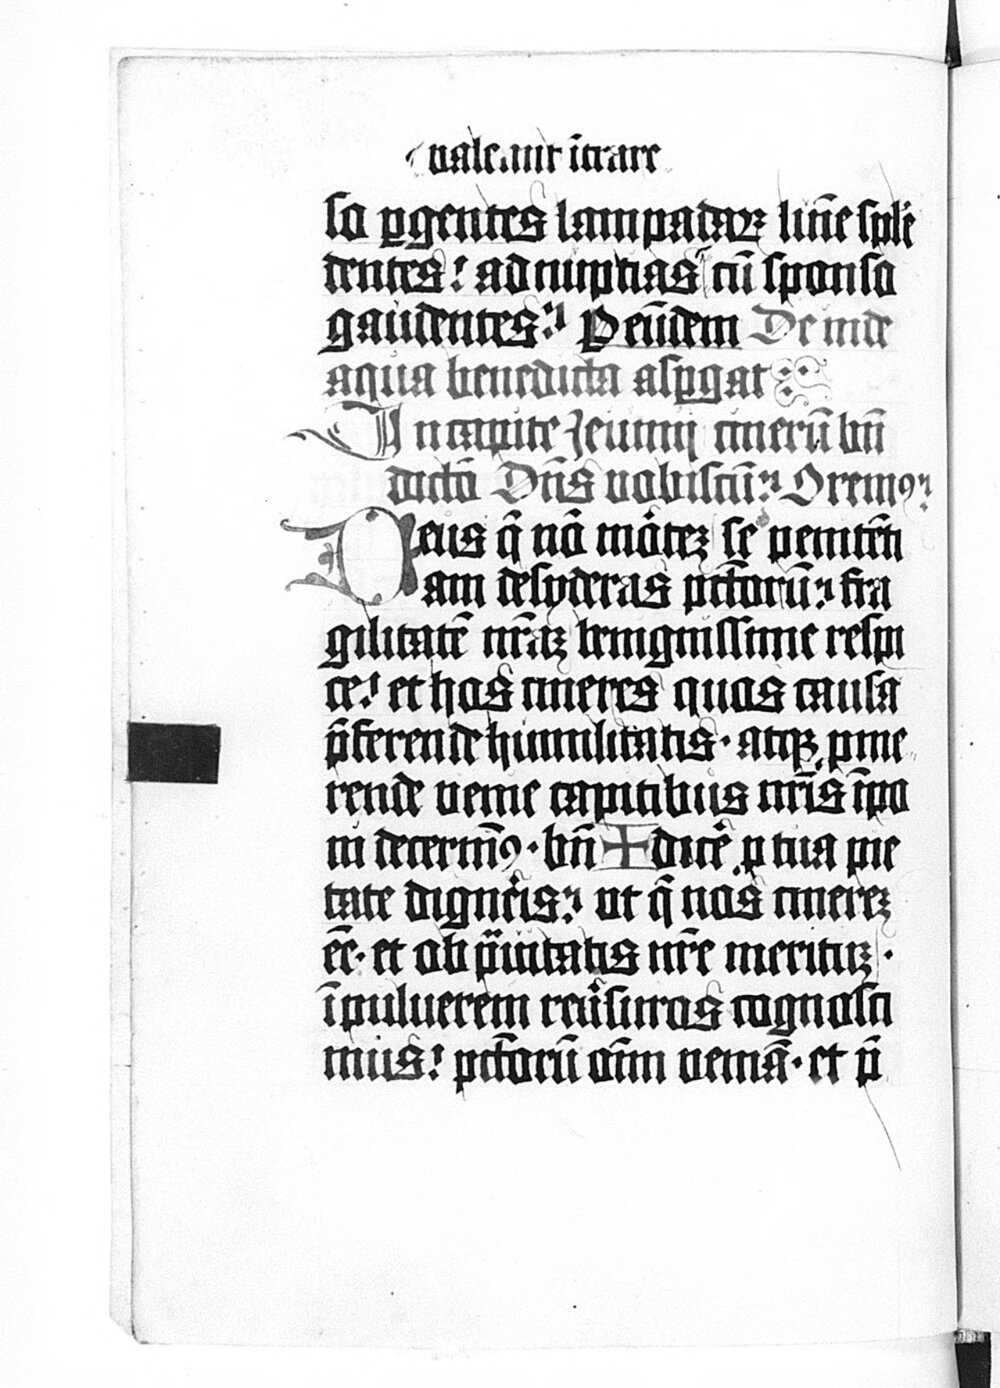 valeant ītrare
so ꝑgentes lampadaꝝ lum̄e splē
dentes! ad nuptias cū sponso
gaudentes. P eūdem Deinde
aqua benedicta aspgat
In capite Jeiunij cinerū bn̄
dictō Dn̄s vobiscū Oremꝰ
Deus q̄ nō mōtez sꝫ penitēti
am desyderas pctōrū fra
gilitatē nr̄aꝫ benignissime respi
ce! et hos cineres quos causa
ꝓferende humilitatis · atqꝫ ꝓme
rende venie capitibus nr̄is īpo
ni decernimꝰ · bn̄ + dicē ꝓ tua pie
tate digneris ut q̄ nos cinerez
ēē · et ob p̄uitatis nr̄e meritū ·
ī puluerem reūsuros cognosci
mus! pctōrū oīm veniā · et p̄